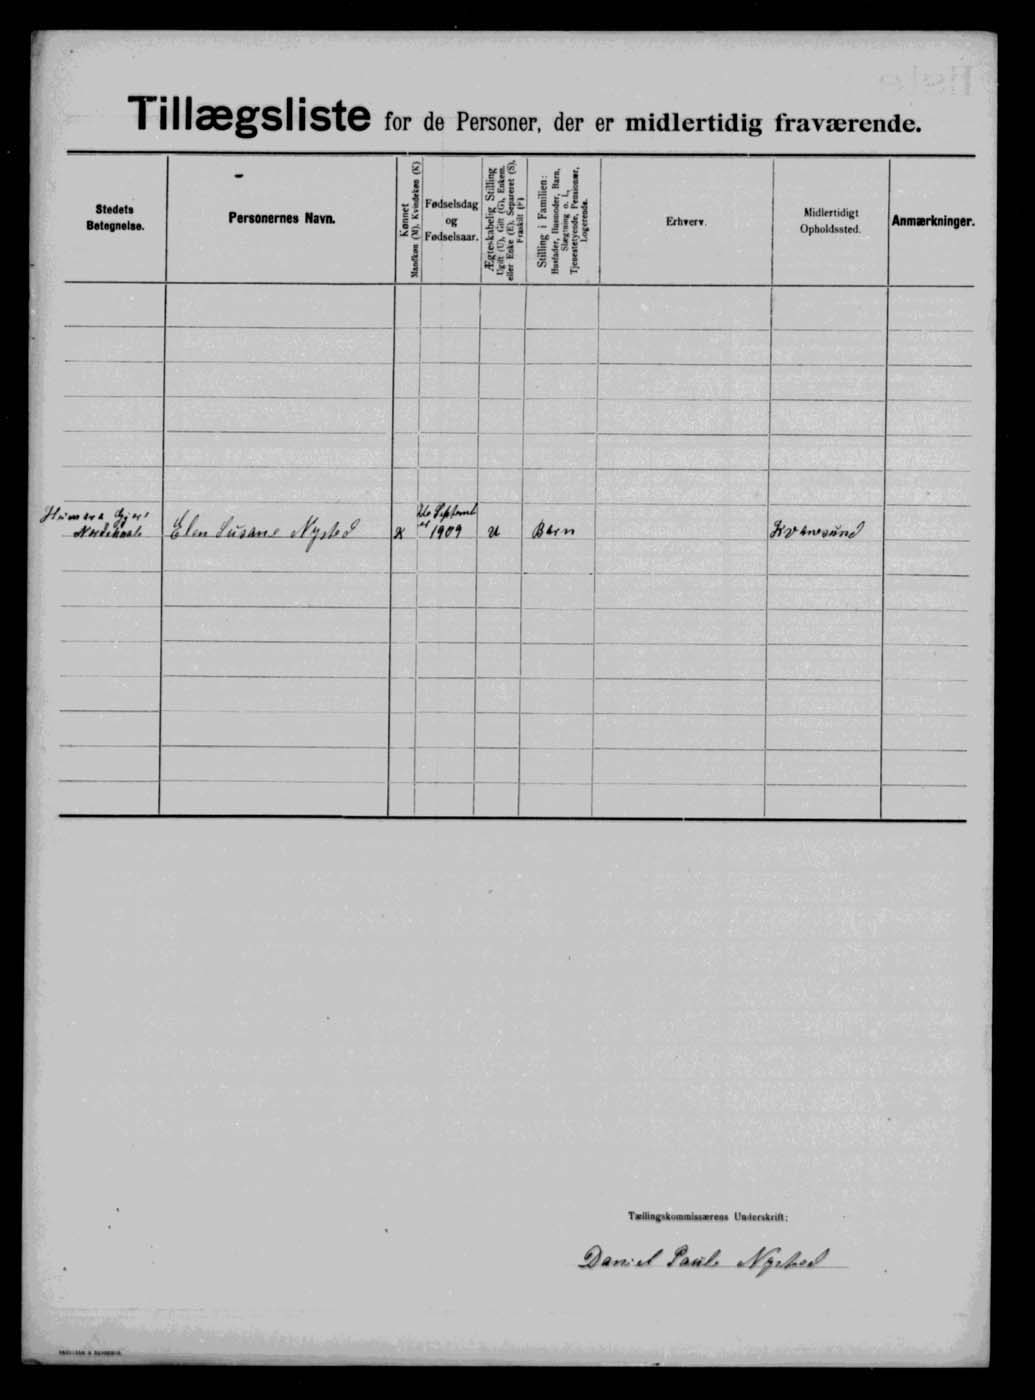 Tillægsliste for de Personer, der er midlertidig fraværende.
Stedets
Betegnelse.
Personernes Navn.
Kønnet
Mandkøn (M), Kvindekøn (K)
Fødselsdag
og
Fødselsaar.
Ægteskabelig Stilling
Ugift (U), Gift (G), Enkem.
eller Enke (E), Separeret (S),
Fraskilt (F)
Stilling i Familien:
Husfader, Husmoder, Barn,
Slægtning o. l.,
Tjenestetyende, Pensionær,
Logerende.
Erhverv.
Midlertidigt
Opholdssted.
Anmærkninger.
Septemb
Elen Susane Nysted K 1909 U Barn Kvanesund
Tællingskommissærens Underskrift:
Daniel Pauli Nysted